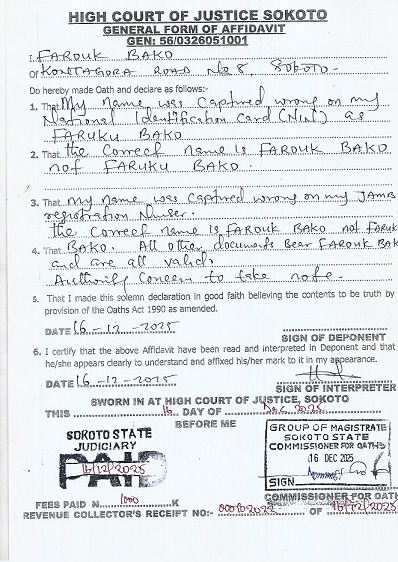 HIGH COURT OF JUSTICE SOKOTO
GENERAL FORM OF AFFIDAVIT
GEN: 56/0326051001
I. FAROUK BAKO
Of KONTAGORA ROAD No 8, SOKOTO.
Do hereby made Oath and declare as follows:-
1. That My name was Captured wrong on my
National Identification Card (NIN) as
FARUKU BAKO
2. That the Correct name is FAROUK BAKO
not FARUKU BAKO.
3. That My name was Captured wrong on my JAMB
registration Number.
the Correct name is FAROUK BAKO not FARUK
4. That BAKO. All other documents Bear FAROUK BAK
and are all valid.
Authority Concern to take note.
5. That I made this solemn declaration in good faith believing the contents to be truth by
provision of the Oaths Act 1990 as amended.
DATE 16-12-2025
SIGN OF DEPONENT
6. I certify that the above Affidavit have been read and interpreted in Deponent and that
he/she appears clearly to understand and affixed his/her mark to it in my appearance.
DATE 16-12-2025
SIGN OF INTERPRETER
SWORN IN AT HIGH COURT OF JUSTICE, SOKOTO
THIS 16 DAY OF Dec. 2025
BEFORE ME
SOKOTO STATE
JUDICIARY
PAID
16/12/2025
GROUP OF MAGISTRATE
SOKOTO STATE
COMMISSIONER FOR OATHS
16 DEC 2025
SIGN
COMMISSIONER FOR OATH
FEES PAID N 1000 K
REVENUE COLLECTOR'S RECEIPT NO:- OF 16/12/2025